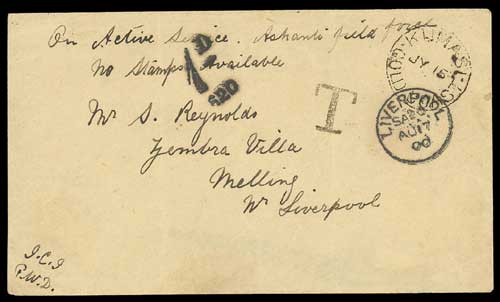 On Active Service. Ashanti field force
No Stamps Available
1D
620
T
KUMASI
GOLD COAST
JY 16
LIVERPOOL
AU 17
00
Mr S. Reynolds
Zembra Villa
Melling
Nr Liverpool
I.C.I
P.W.D.